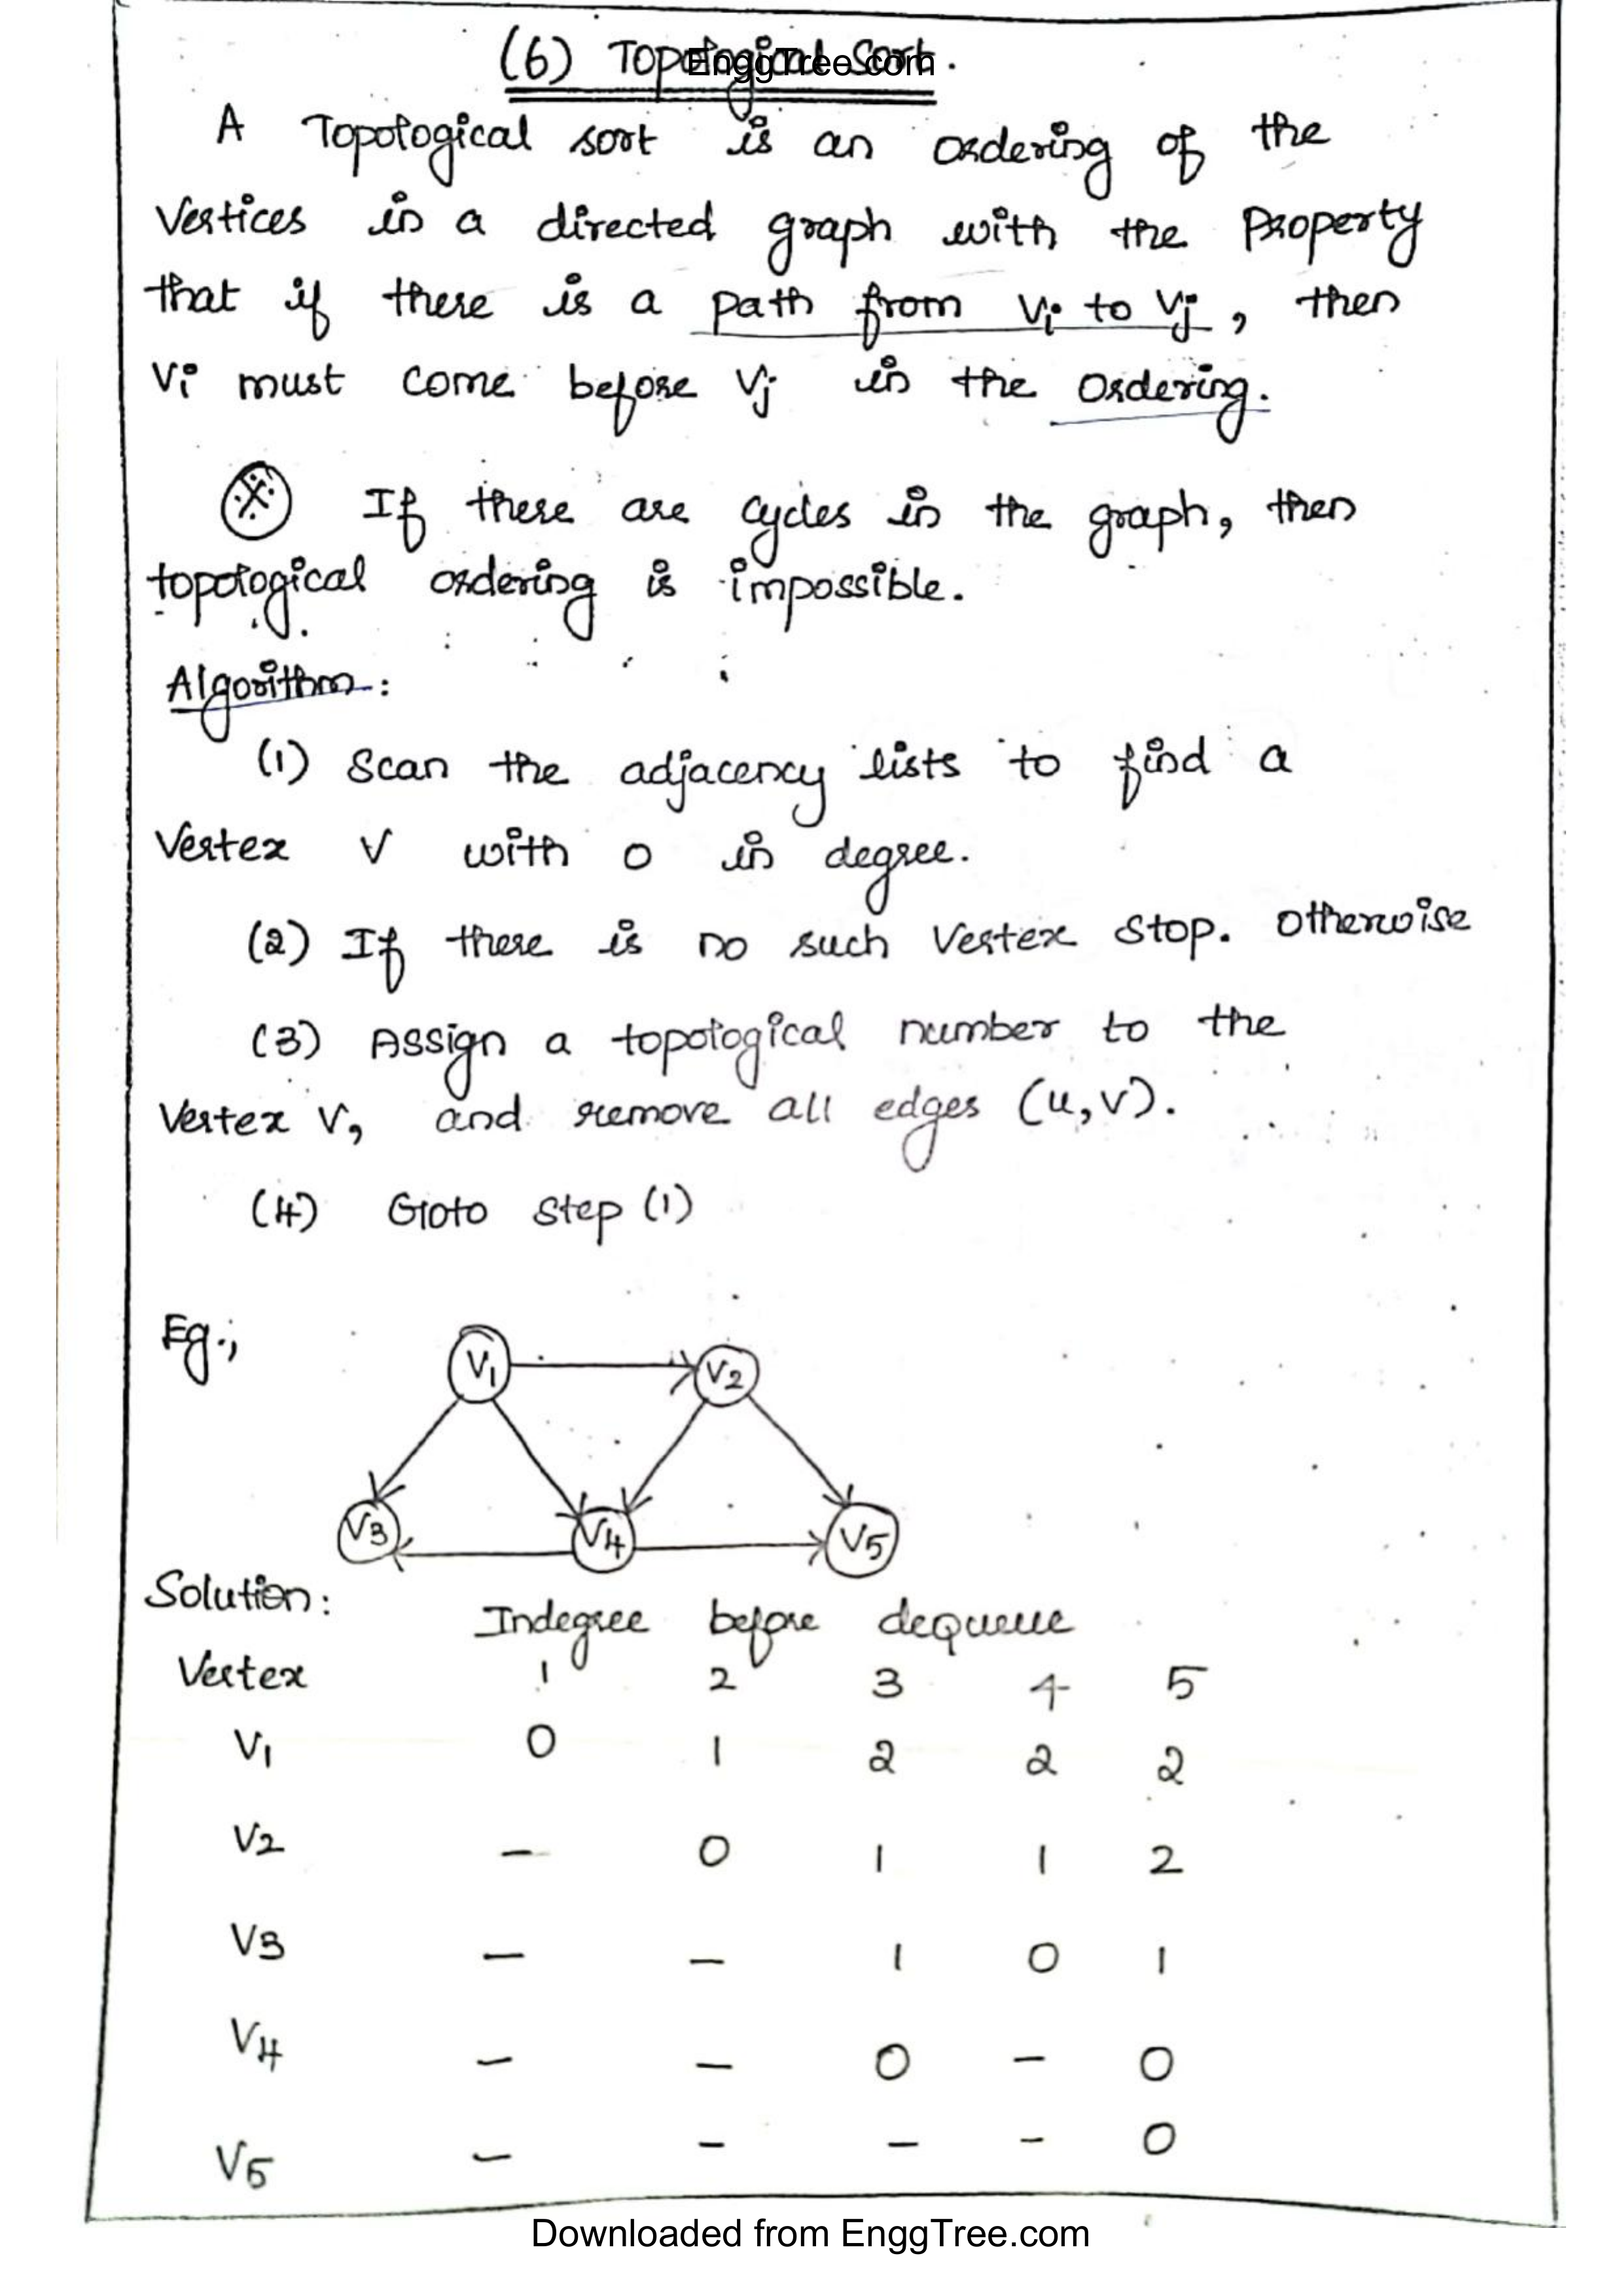 (6) Topological Sort.
EnggTree.com
A Topological sort is an ordering of the
Vertices in a directed graph with the Property
that if there is a path from Vi to Vj, then
Vi must come before Vj in the Ordering.
If there are cycles in the graph, then
topological ordering is impossible.
Algorithm:
(1) Scan the adjacency lists to find a
Vertex V with 0 in degree.
(2) If there is no such Vertex Stop. Otherwise
(3) Assign a topological number to the
Vertex V, and remove all edges (u,v).
(4) Goto Step (1)
Eg.;
V1 V2
V3 V4 V5
Solution:
Indegree before dequeue
Vertex 1 2 3 4 5
V1 0 1 2 2 2
V2 - 0 1 1 2
V3 - - 1 0 1
V4 - - 0 - 0
V5 - - - - 0
Downloaded from EnggTree.com